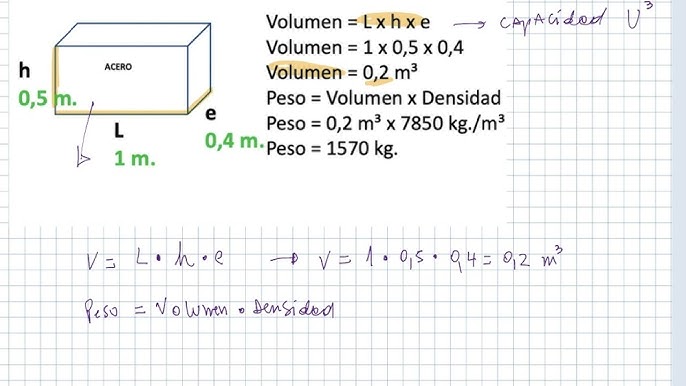 Volumen = L x h x e → CAPACIDAD U³
Volumen = 1 x 0,5 x 0,4
Volumen = 0,2 m³
Peso = Volumen x Densidad
Peso = 0,2 m³ x 7850 kg./m³
Peso = 1570 kg.
ACERO
h
0,5 m.
e
0,4 m.
L
1 m.
V = L · h · e → V = 1 · 0,5 · 0,4 = 0,2 m³
Peso = Volumen · Densidad